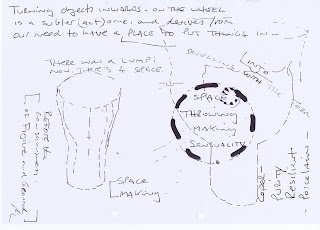 TURNING OBJECTS INWARDS - ON THE WHEEL
IS A SUBTLE (ART) ONE: AND DERIVES FROM
OUR NEED TO HAVE A PLACE TO PUT THINGS IN -
THERE WAS A LUMP!
NOW THERE'S A SPACE.
DEVELOPING WITH THE FORM
INTO
SPACE
THROWING
MAKING
SENSUALITY
SPACE
MAKING
OF FIGURE AND GROUND
PURITY
RESILIENT
PORCELAIN -